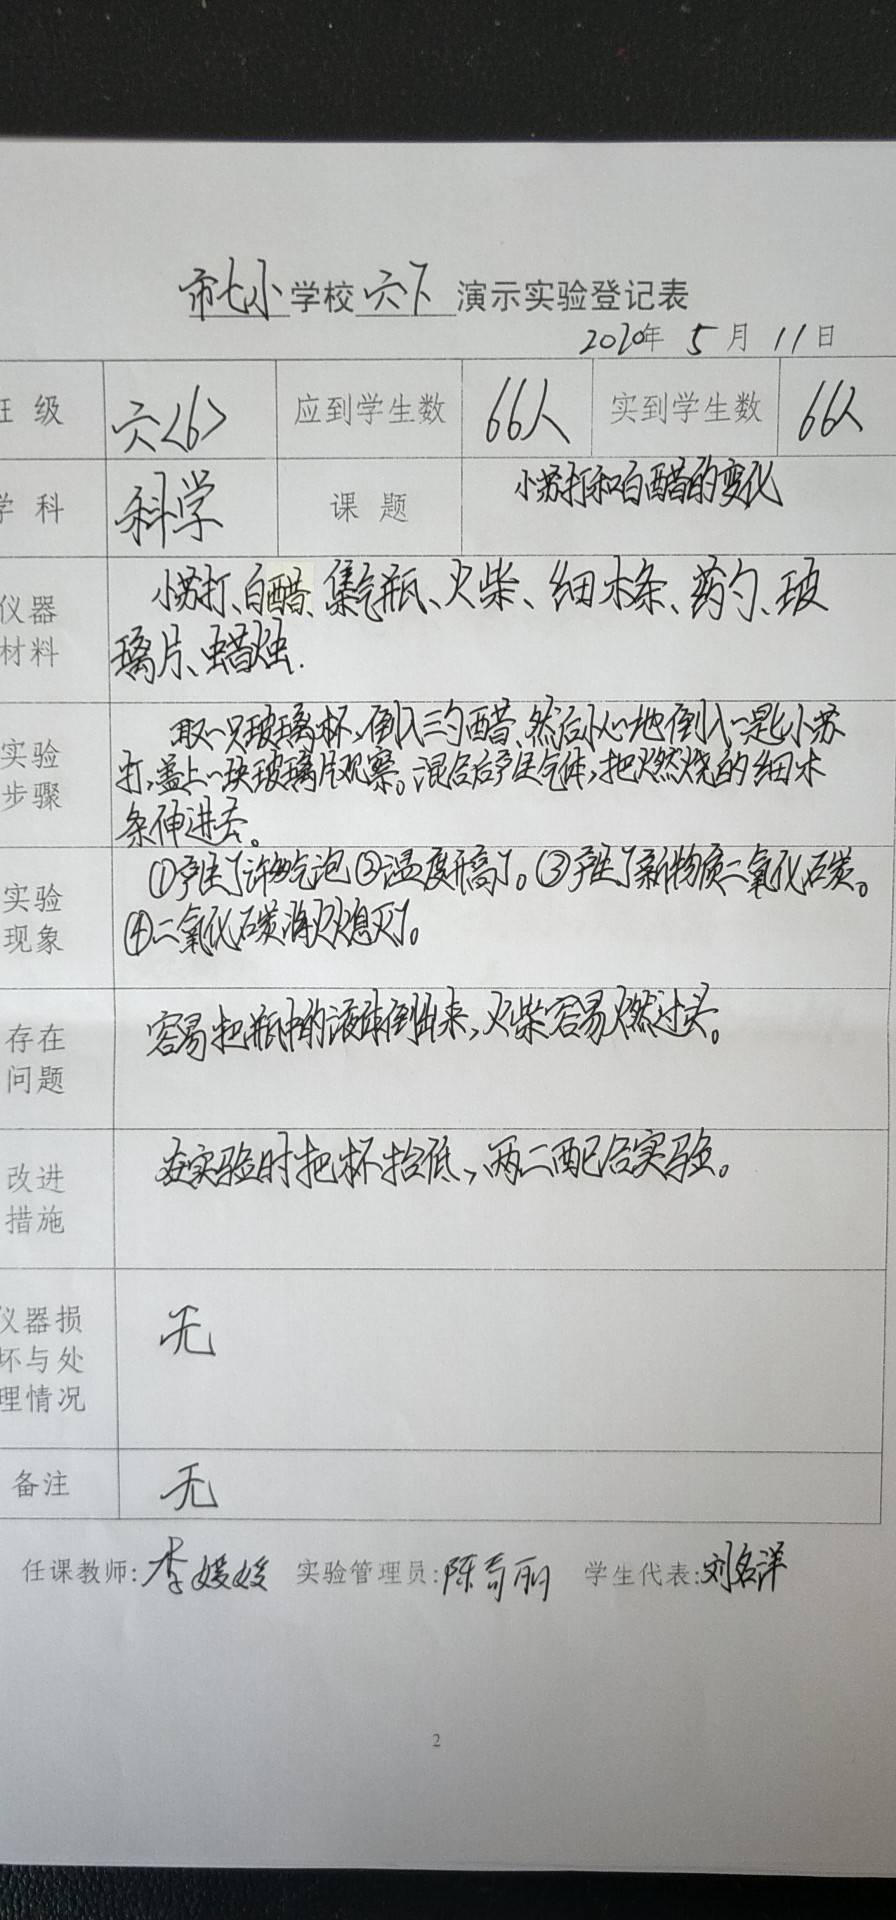 市七小学校六下演示实验登记表
2020年 5月 11日
班级 六<6> 应到学生数 66人 实到学生数 66人
学科 科学 课题 小苏打和白醋的变化
仪器
材料
小苏打、白醋、集气瓶、火柴、细木条、药勺、玻
璃片、蜡烛.
实验
步骤
取一只玻璃杯,倒入三勺醋,然后小心地倒入一匙小苏
打,盖上一块玻璃片观察。混合后产生气体,把燃烧的细木
条伸进去。
实验
现象
①产生了许多气泡②温度升高了。③产生了新物质二氧化石炭。
④二氧化石炭将火熄灭了。
存在
问题
容易把瓶中的液体倒出来,火柴容易燃过头。
改进
措施
在实验时把杯抬低,两二配合实验。
仪器损
坏与处
理情况
无
备注 无
任课教师:李媛媛 实验管理员:陈奇丽 学生代表:刘名洋
2